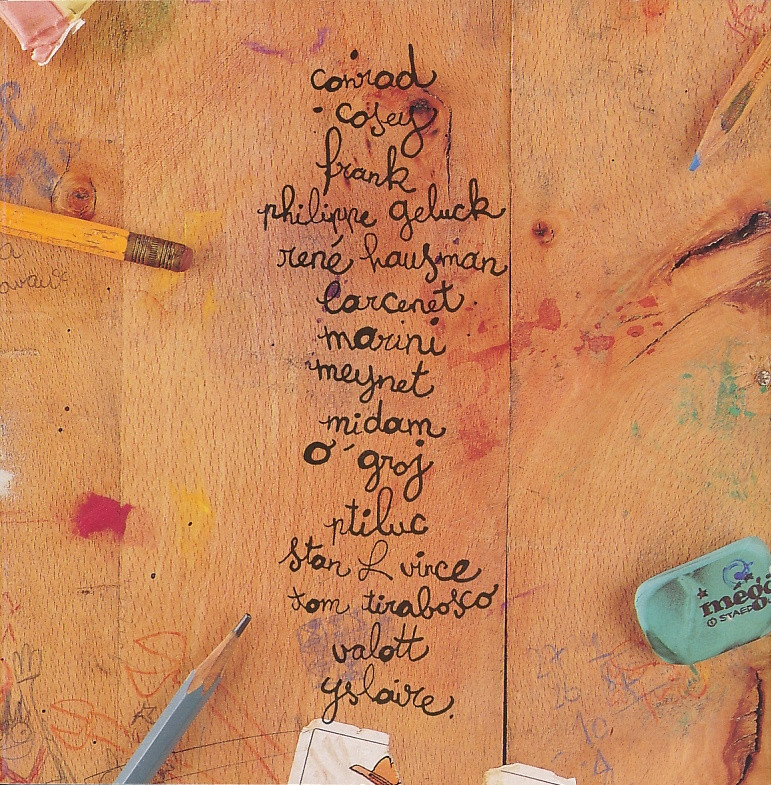 conrad
cosey
frank
philippe geluck
rené hausman
larcenet
marini
meynet
midam
O'groj
ptiluc
stan L vince
tom tirabosco
valott
yslaire.
méga
© STAED
27
20
10
4